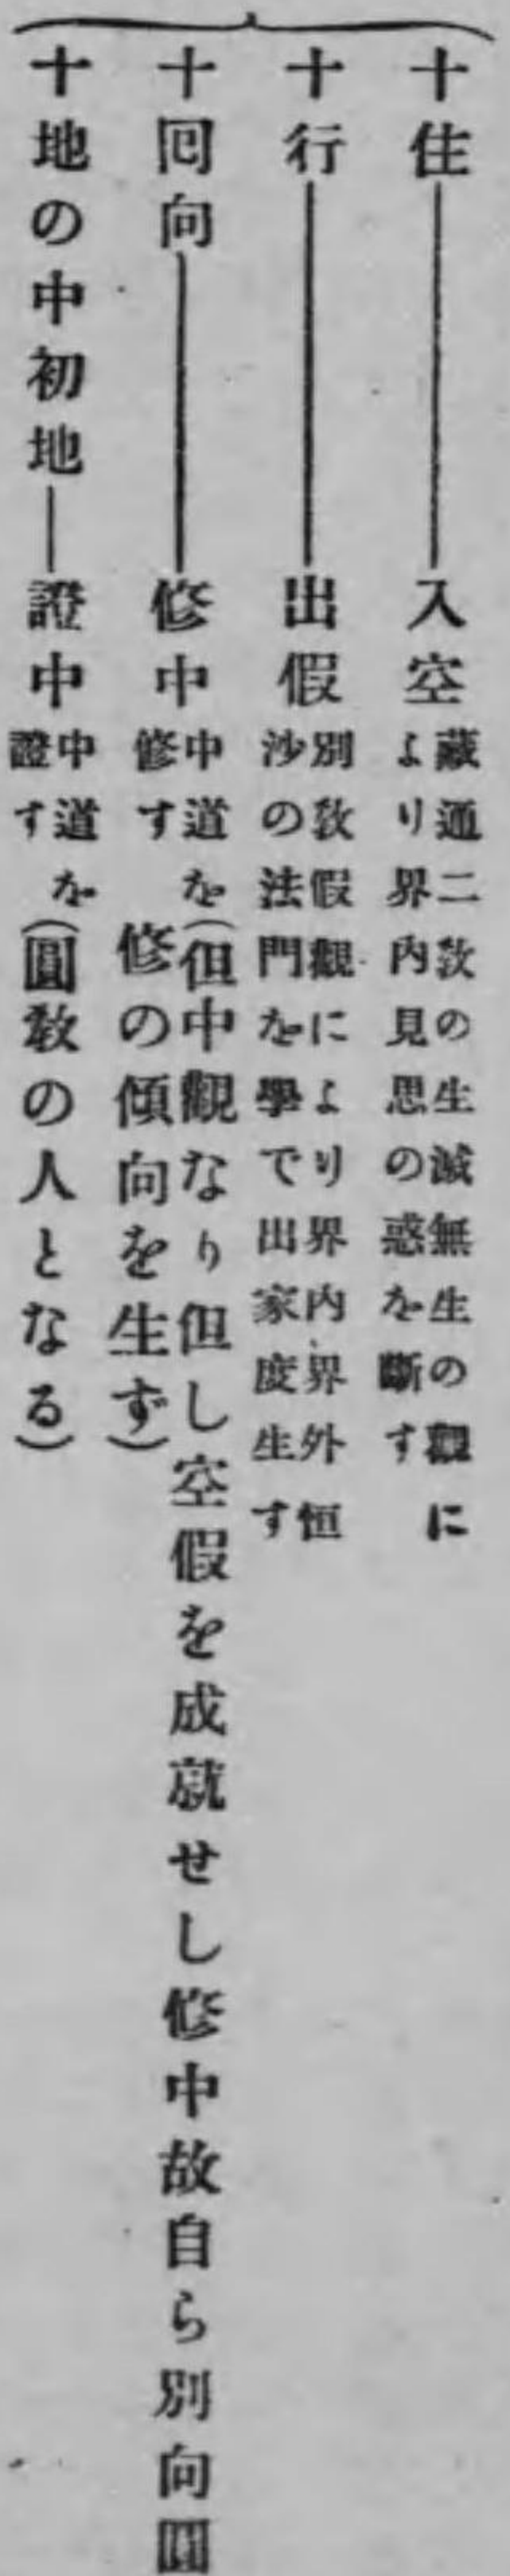 十住――入空 藏通二敎の生滅無生の觀に
より界内見思の惑を斷す
十行――出假 別敎假觀により界内界外恒
沙の法門を學で出家度生す
十囘向――修中 中道を
修す
(但中觀なり但し空假を成就せし修中故自ら別向圓
修の傾向を生ず)
十地の中初地―證中 中道を
證す
(圓敎の人となる)